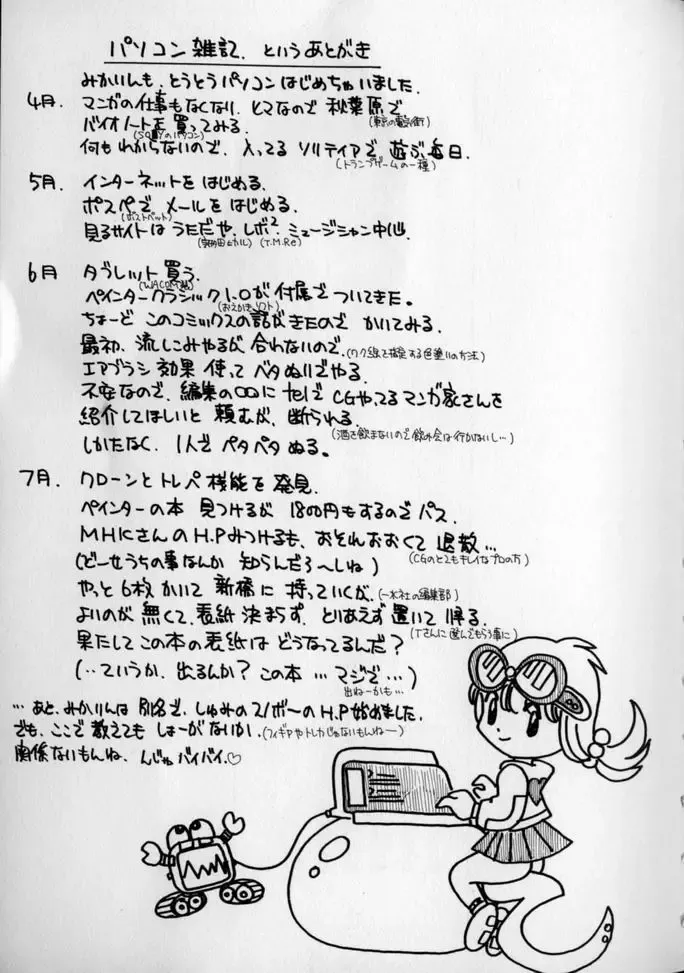 パソコン雑記、というあとがき
みかりんも、とうとうパソコンはじめちゃいました。
4月. マンガの仕事もなくなり、ヒマなので 秋葉原で
(東京の電気街)
バイオノートを買ってみる。
(SONYのパソコン)
何もわからないので、入ってる ソリティアで 遊ぶ毎日.
(トランプゲームの一種)
5月. インターネットを はじめる.
ポスペで、メールを はじめる.
(ポストペット)
見るサイトは うただや、レボ² ミュージシャン中心.
(宇多田ヒカル) (T.M.Re)
6月 タブレット買う.
(WACOM)
ペインタークラシック1.0が 付属で ついてきた。
(おえかきソフト)
ちょーど このコミックスの話がきたので かいてみる.
最初、流しこみやるが 合わないので、(ワク線で指定する色塗りの方法)
エアブラシ 効果 使って ベタぬりでやる.
不安なので、編集の〇〇に telで CGやってるマンガ家さんを
紹介してほしいと 頼むが、断られる.
(酒を飲まないので 飲み会は行かないし…)
しかたなく、1人で ペタペタ ぬる。
7月. クローンと トレペ 機能を 発見.
ペインターの本 見つけるが 1800円もするのでパス.
MHKさんの H.Pみつけるも、おそれおおくて 退散…
(CGのとてもキレイなプロの方)
(どーせうちの事なんか 知らんだろ〜しね)
やっと6枚かいて 新橋に 持っていくが、(一水社の編集部)
よいのが 無くて、表紙 決まらず、とりあえず 置いて 帰る.
(Tさんに 選んでもらう事に)
果たして この本の表紙は どうなってるんだ？
(‥ていうか、出るんか？ この本 … マジで …)
出ねーかも…
… あと、みかりんは 別名で、しゅみのスノボーの H.P 始めました.
でも、ここで 教えても しょーがないか.(フィギアやトレカじゃないもんねー)
関係ないもんね、んじゃねバイバイ.♡